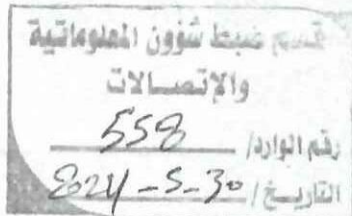 قسم ضبط شؤون المعلوماتية
والإتصالات
رقم الوارد/ 558
التاريخ/ 2024-5-30